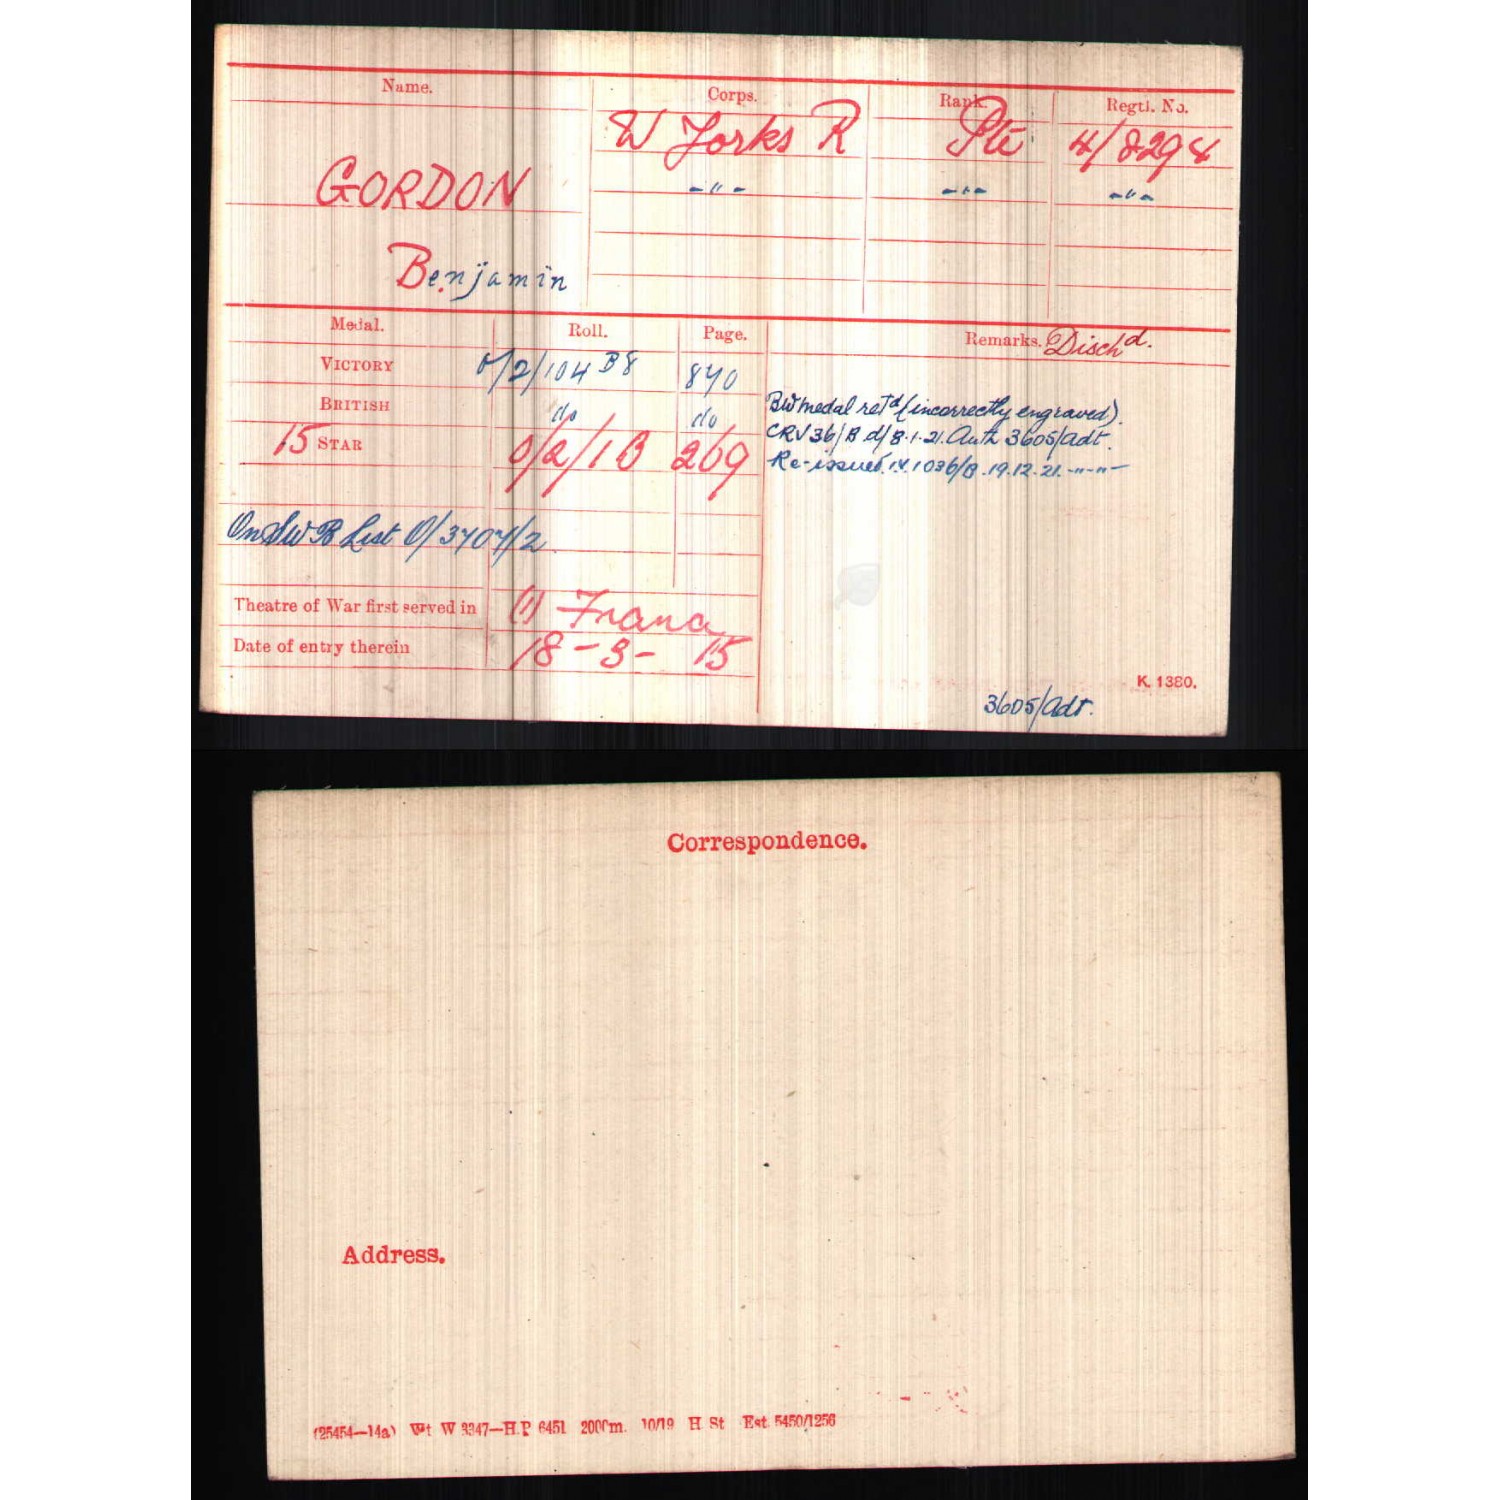 Name. Corps. Rank. Regtl. No.
W Yorks R Pte 4/8294
GORDON -"- -"- -"-
Benjamin
Medal. Roll. Page. Remarks. Dischd.
VICTORY O/2/104 B8 840
BRITISH do do
15 STAR O/2/1B 269
BW medal retd (incorrectly engraved).
CRV 36/B d/8.1.21. Auth 3605/Adt.
Re-issued. IV. 1036/B. 19.12.21. -"-"-
On SWB List O/3704/2
Theatre of War first served in (1) France
Date of entry therein 18-3-15
K. 1380.
3605/Adt.
Correspondence.
Address.
(25454—14a) Wt W 3347—H.P 6451 2000m. 10/19 H St Est. 5450/1256